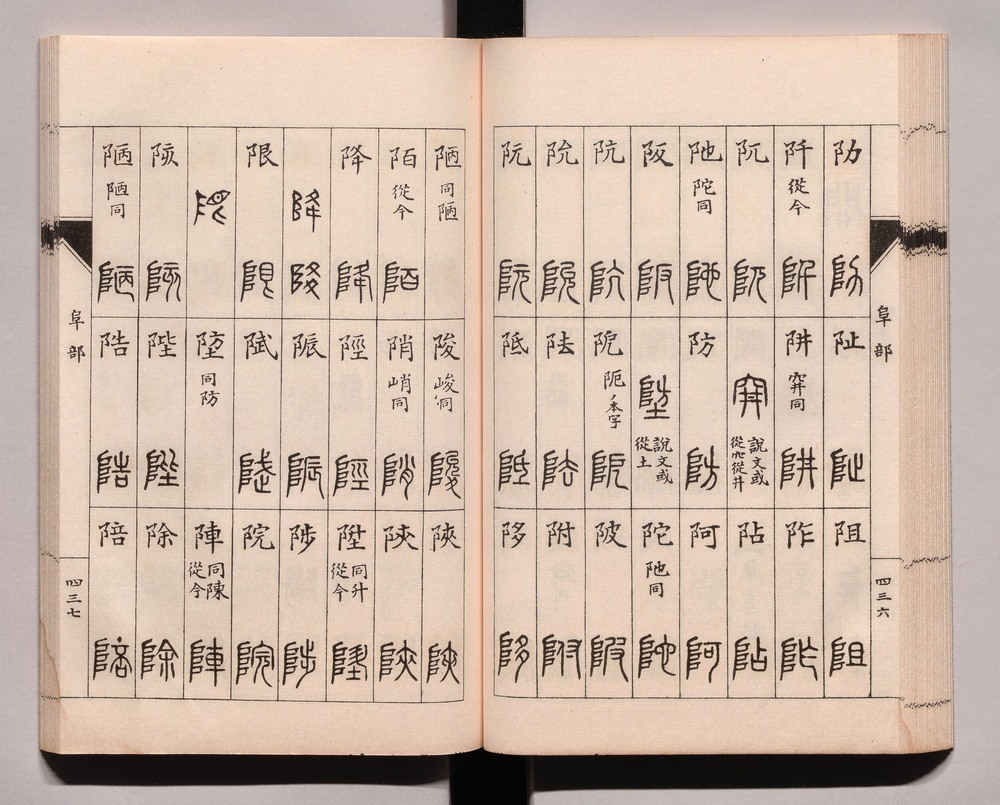 阞
阡 從今
阢
阤 陀同
阪
阬
阭
阮
阯
阱 穽同
說文或
從穴從井
防
說文或
從土
阸 阨ノ本字
阹
阺
阻
阼
阽
阿
陀 阤同
陂
附
陊
阜部
四三六
陋 同陋
陌 從今
降
限
陔
陋 陋同
陖 峻同
陗 峭同
陘
陙
陚
陞 同防
陛
陪
陜
陝
陞 同升
從今
陟
院
陣 同陳
從今
除
陪
阜部
四三七